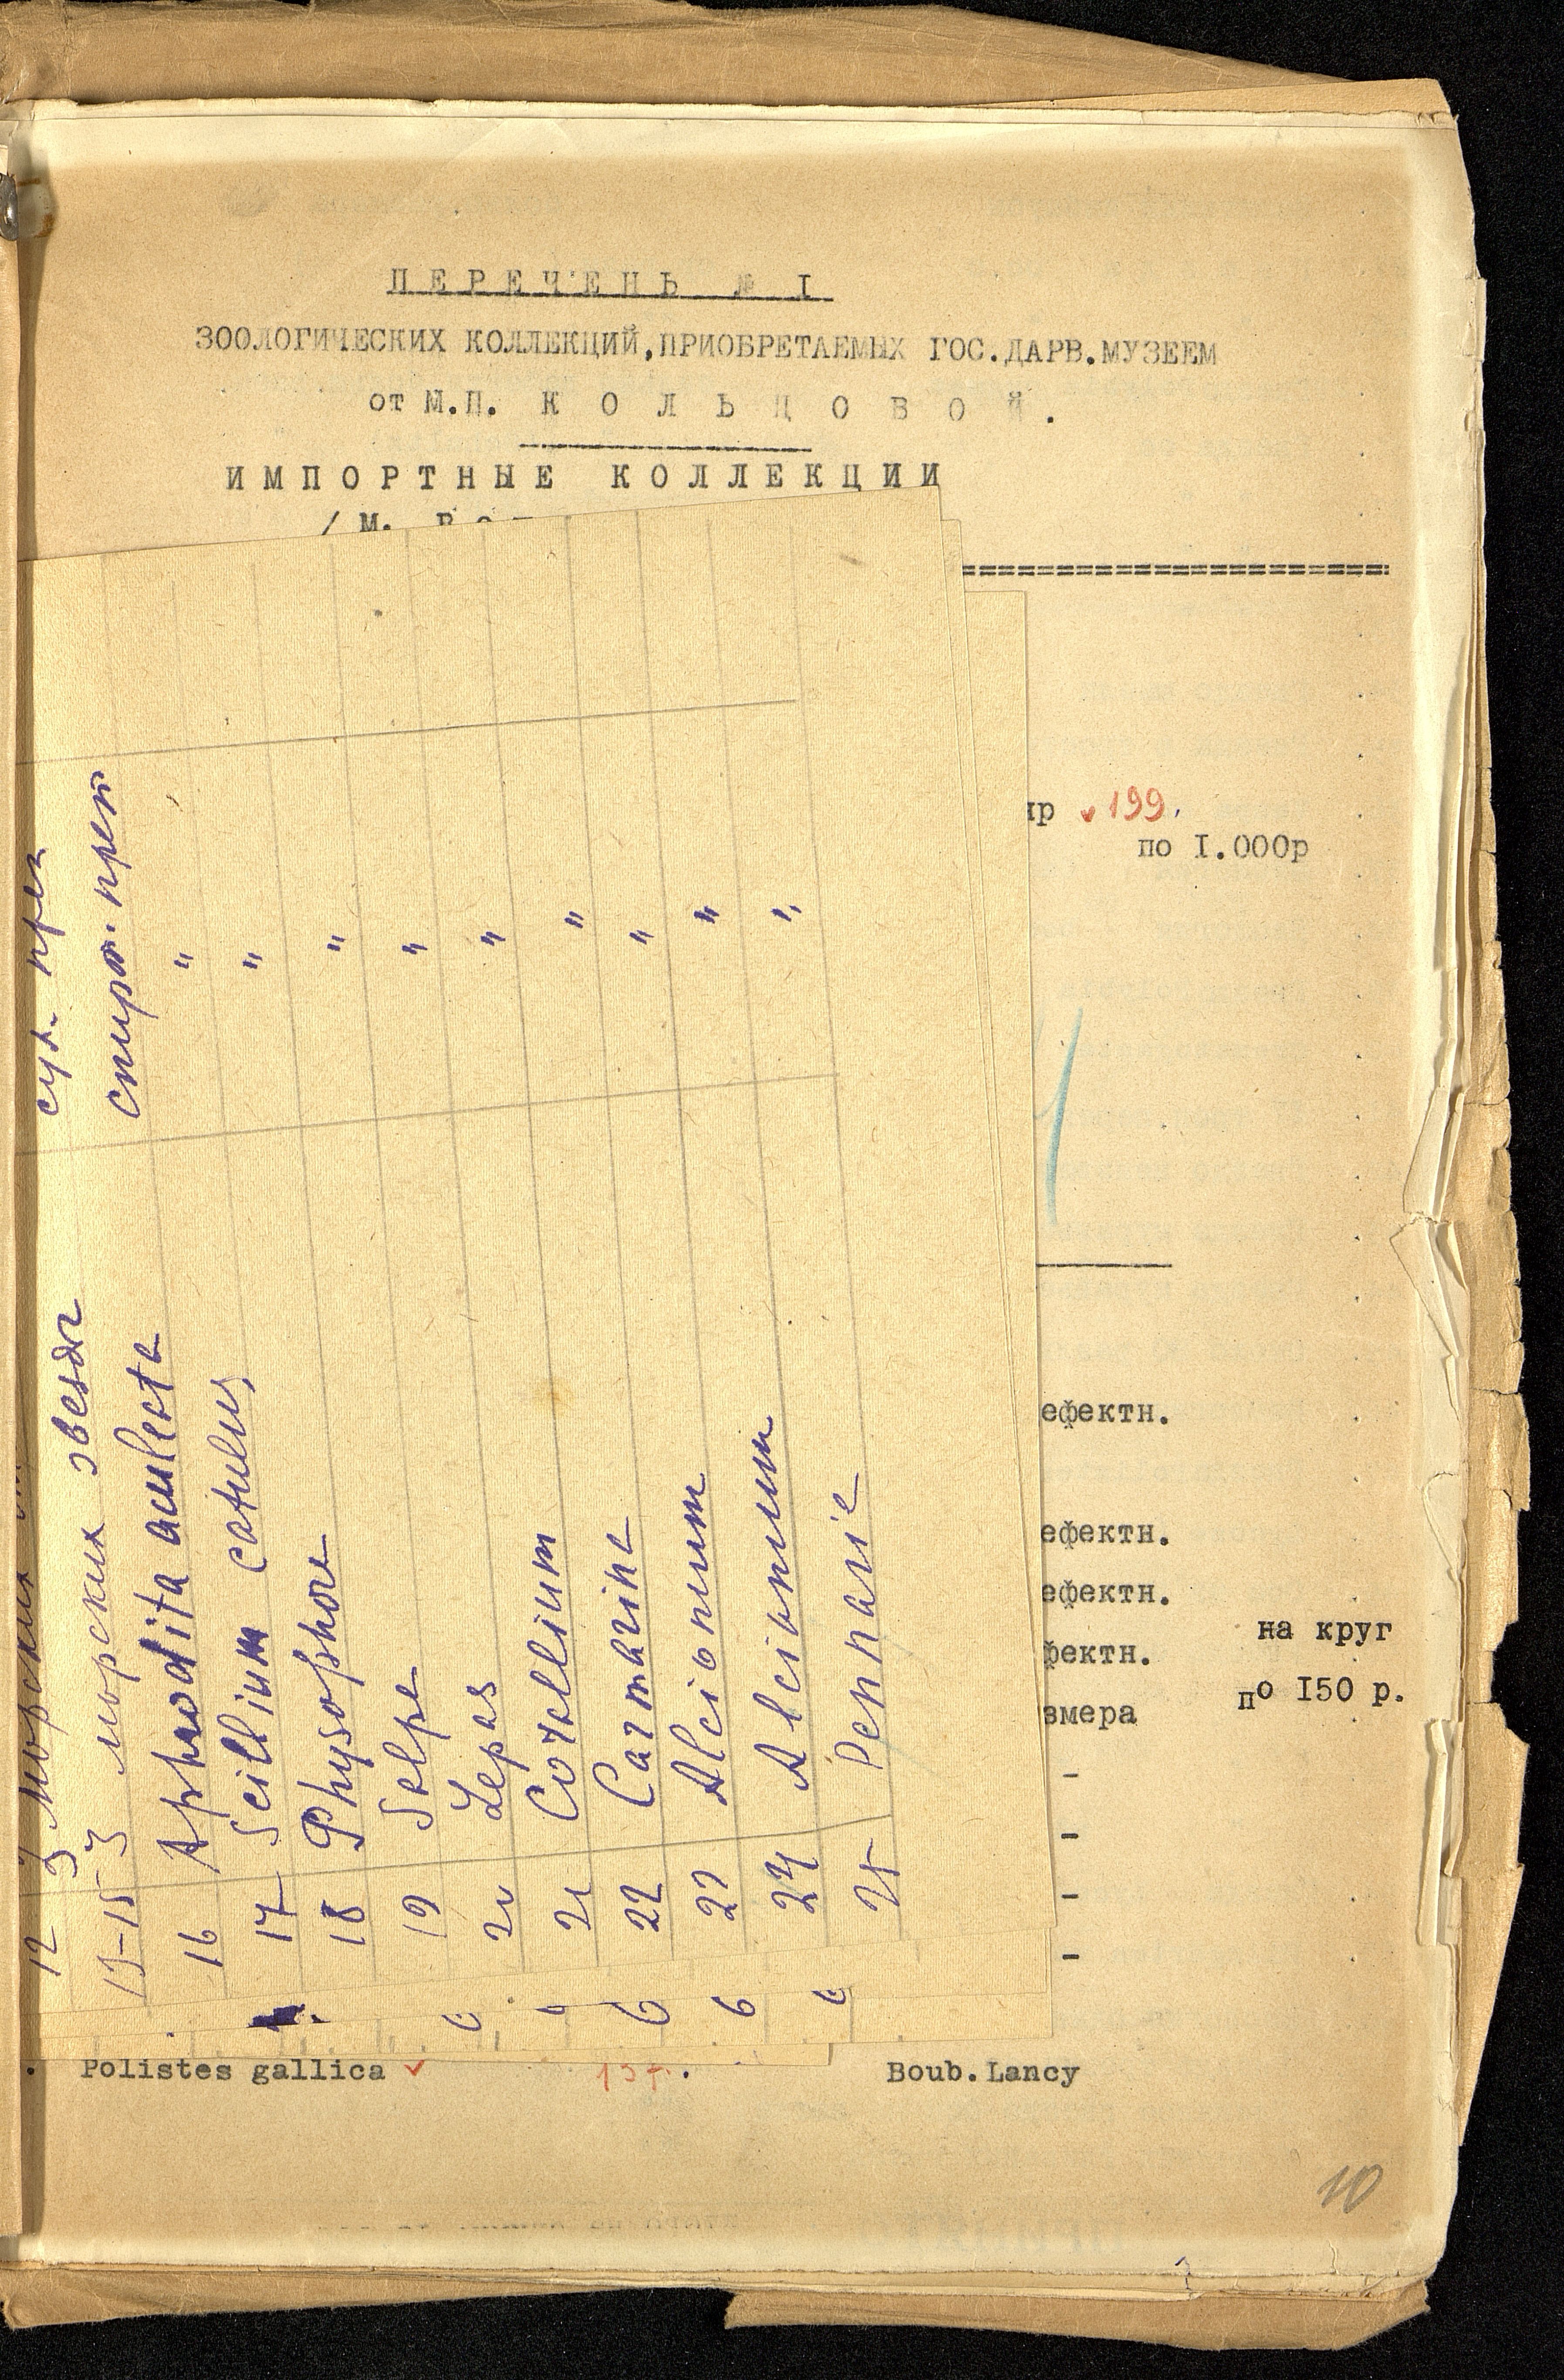 ПЕРЕЧЕНЬ № I
ЗООЛОГИЧЕСКИХ КОЛЛЕКЦИЙ, ПРИОБРЕТАЕМЫХ ГОС.ДАРВ.МУЗЕЕМ
от М.П. КОЛЬЦОВОЙ.
ИМПОРТНЫЕ КОЛЛЕКЦИИ
/М.
яр 199.
по I.000р
ефектн.
ефектн.
ефектн.
на круг
фектн.
по I50 р.
змера
-
-
-
-
Polistes gallica
Boub.Lancy
10
12 3 морских сух. преп
13-15 3 морских звезды спирт. преп
16 Aphrodita aculeata "
17 Scillium catulus "
18 Physophora "
19 Salpa "
20 Lepas "
21 Corallium "
22 Carmarina "
23 Alcionium "
24 Alcionium "
25 Pennaria